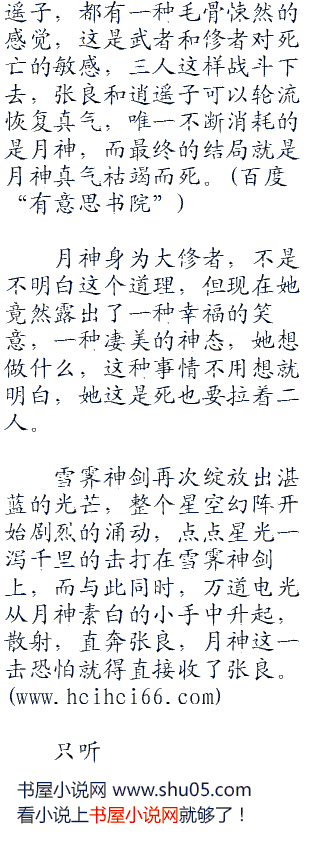 遥子，都有一种毛骨悚然的
感觉，这是武者和修者对死
亡的敏感，三人这样战斗下
去，张良和逍遥子可以轮流
恢复真气，唯一不断消耗的
是月神，而最终的结局就是
月神真气枯竭而死。(百度
“有意思书院”)
月神身为大修者，不是
不明白这个道理，但现在她
竟然露出了一种幸福的笑
意，一种凄美的神态，她想
做什么，这种事情不用想就
明白，她这是死也要拉着二
人。
雪霁神剑再次绽放出湛
蓝的光芒，整个星空幻阵开
始剧烈的涌动，点点星光一
泻千里的击打在雪霁神剑
上，而与此同时，万道电光
从月神素白的小手中升起，
散射，直奔张良，月神这一
击恐怕就得直接收了张良。
(www.hcihci66.com)
只听
书屋小说网 www.shu05.com
看小说上书屋小说网就够了！